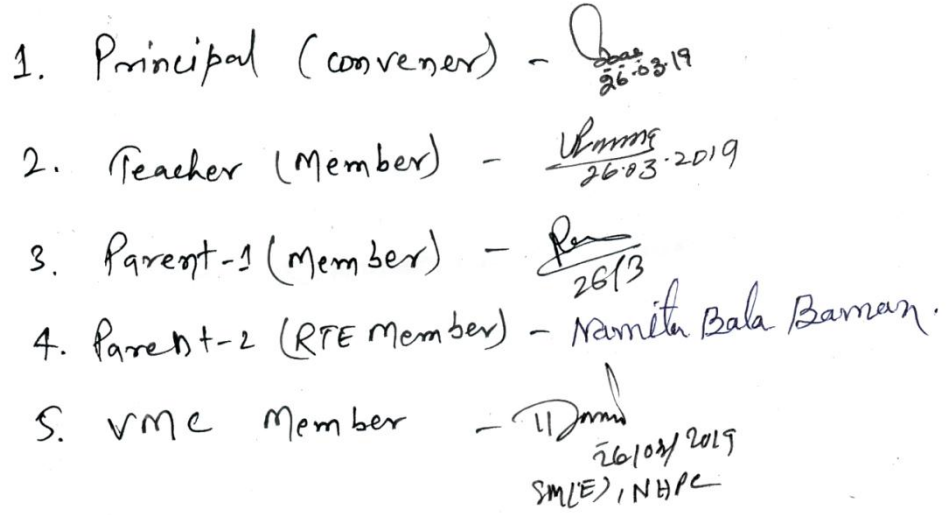 1. Principal (convener) -
26.03.19
2. Teacher (Member) -
26.03.2019
3. Parent-1 (Member) -
26/3
4. Parent-2 (RTE Member) - Namita Bala Barman.
5. VMC Member -
26/03/2019
SM(E), NHPC